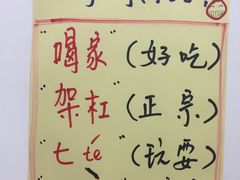 “喝家”(好吃)
“架杠”(正宗)
“七té”(玩耍)